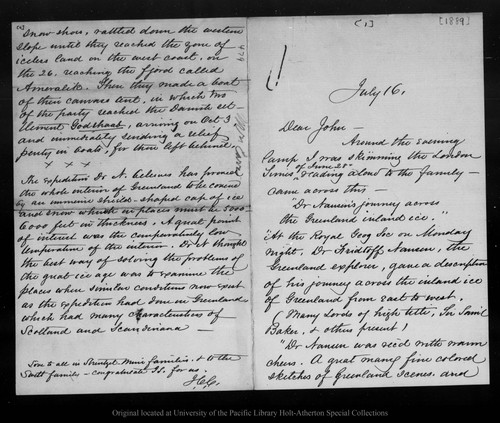 [1]
[1889]
July 16,
Dear John—
Around the evening
lamp I was skimming the London
Times, of June 25th reading aloud to the family—
came across this—
"Dr Nansen's journey across
the Greenland inland ice."
"At the Royal Geog Soc on Monday
night, Dr Fridtoff Nansen, the
Greenland explorer, gave a description
of his journey across the inland ice
of Greenland from east to west.
(Many Lords of high title, Sir Saml
Baker, & others present)
"Dr Nansen was rec'd with warm
cheers. A great many fine colored
sketches of Greenland scenes. and
snow shoes, rattled down the western
slope until they reached the zone of
iceless land on the west coast, on
the 26. reaching the fjord called
Ameralik. Then they made a boat
of their canvass tent, in which two
of the party reached the Danish set-
tlement Godshaab, arriving on Oct 3
and immediately sending a relief
party in boats, for those left behind.
x x x
The expedition Dr N. believes has proved
the whole interior of Greenland to be covered
by an immense shield-shaped cap of ice
and snow which in places must be 5000
6000 feet in thickness. A great point
of interest was the comparatively low
temperature of the interior. Dr N thought
the best way of solving the problems of
the great ice age was to examine the
places where similar conditions now exist
as the expedition had done in Greenland
which had many characteristics of
Scotland and Scandinavia—
Love to all in Strentzel Muir families. & to the
Swett family — congratulate for us.
J.C.C.
Original located at University of the Pacific Library Holt-Atherton Special Collections